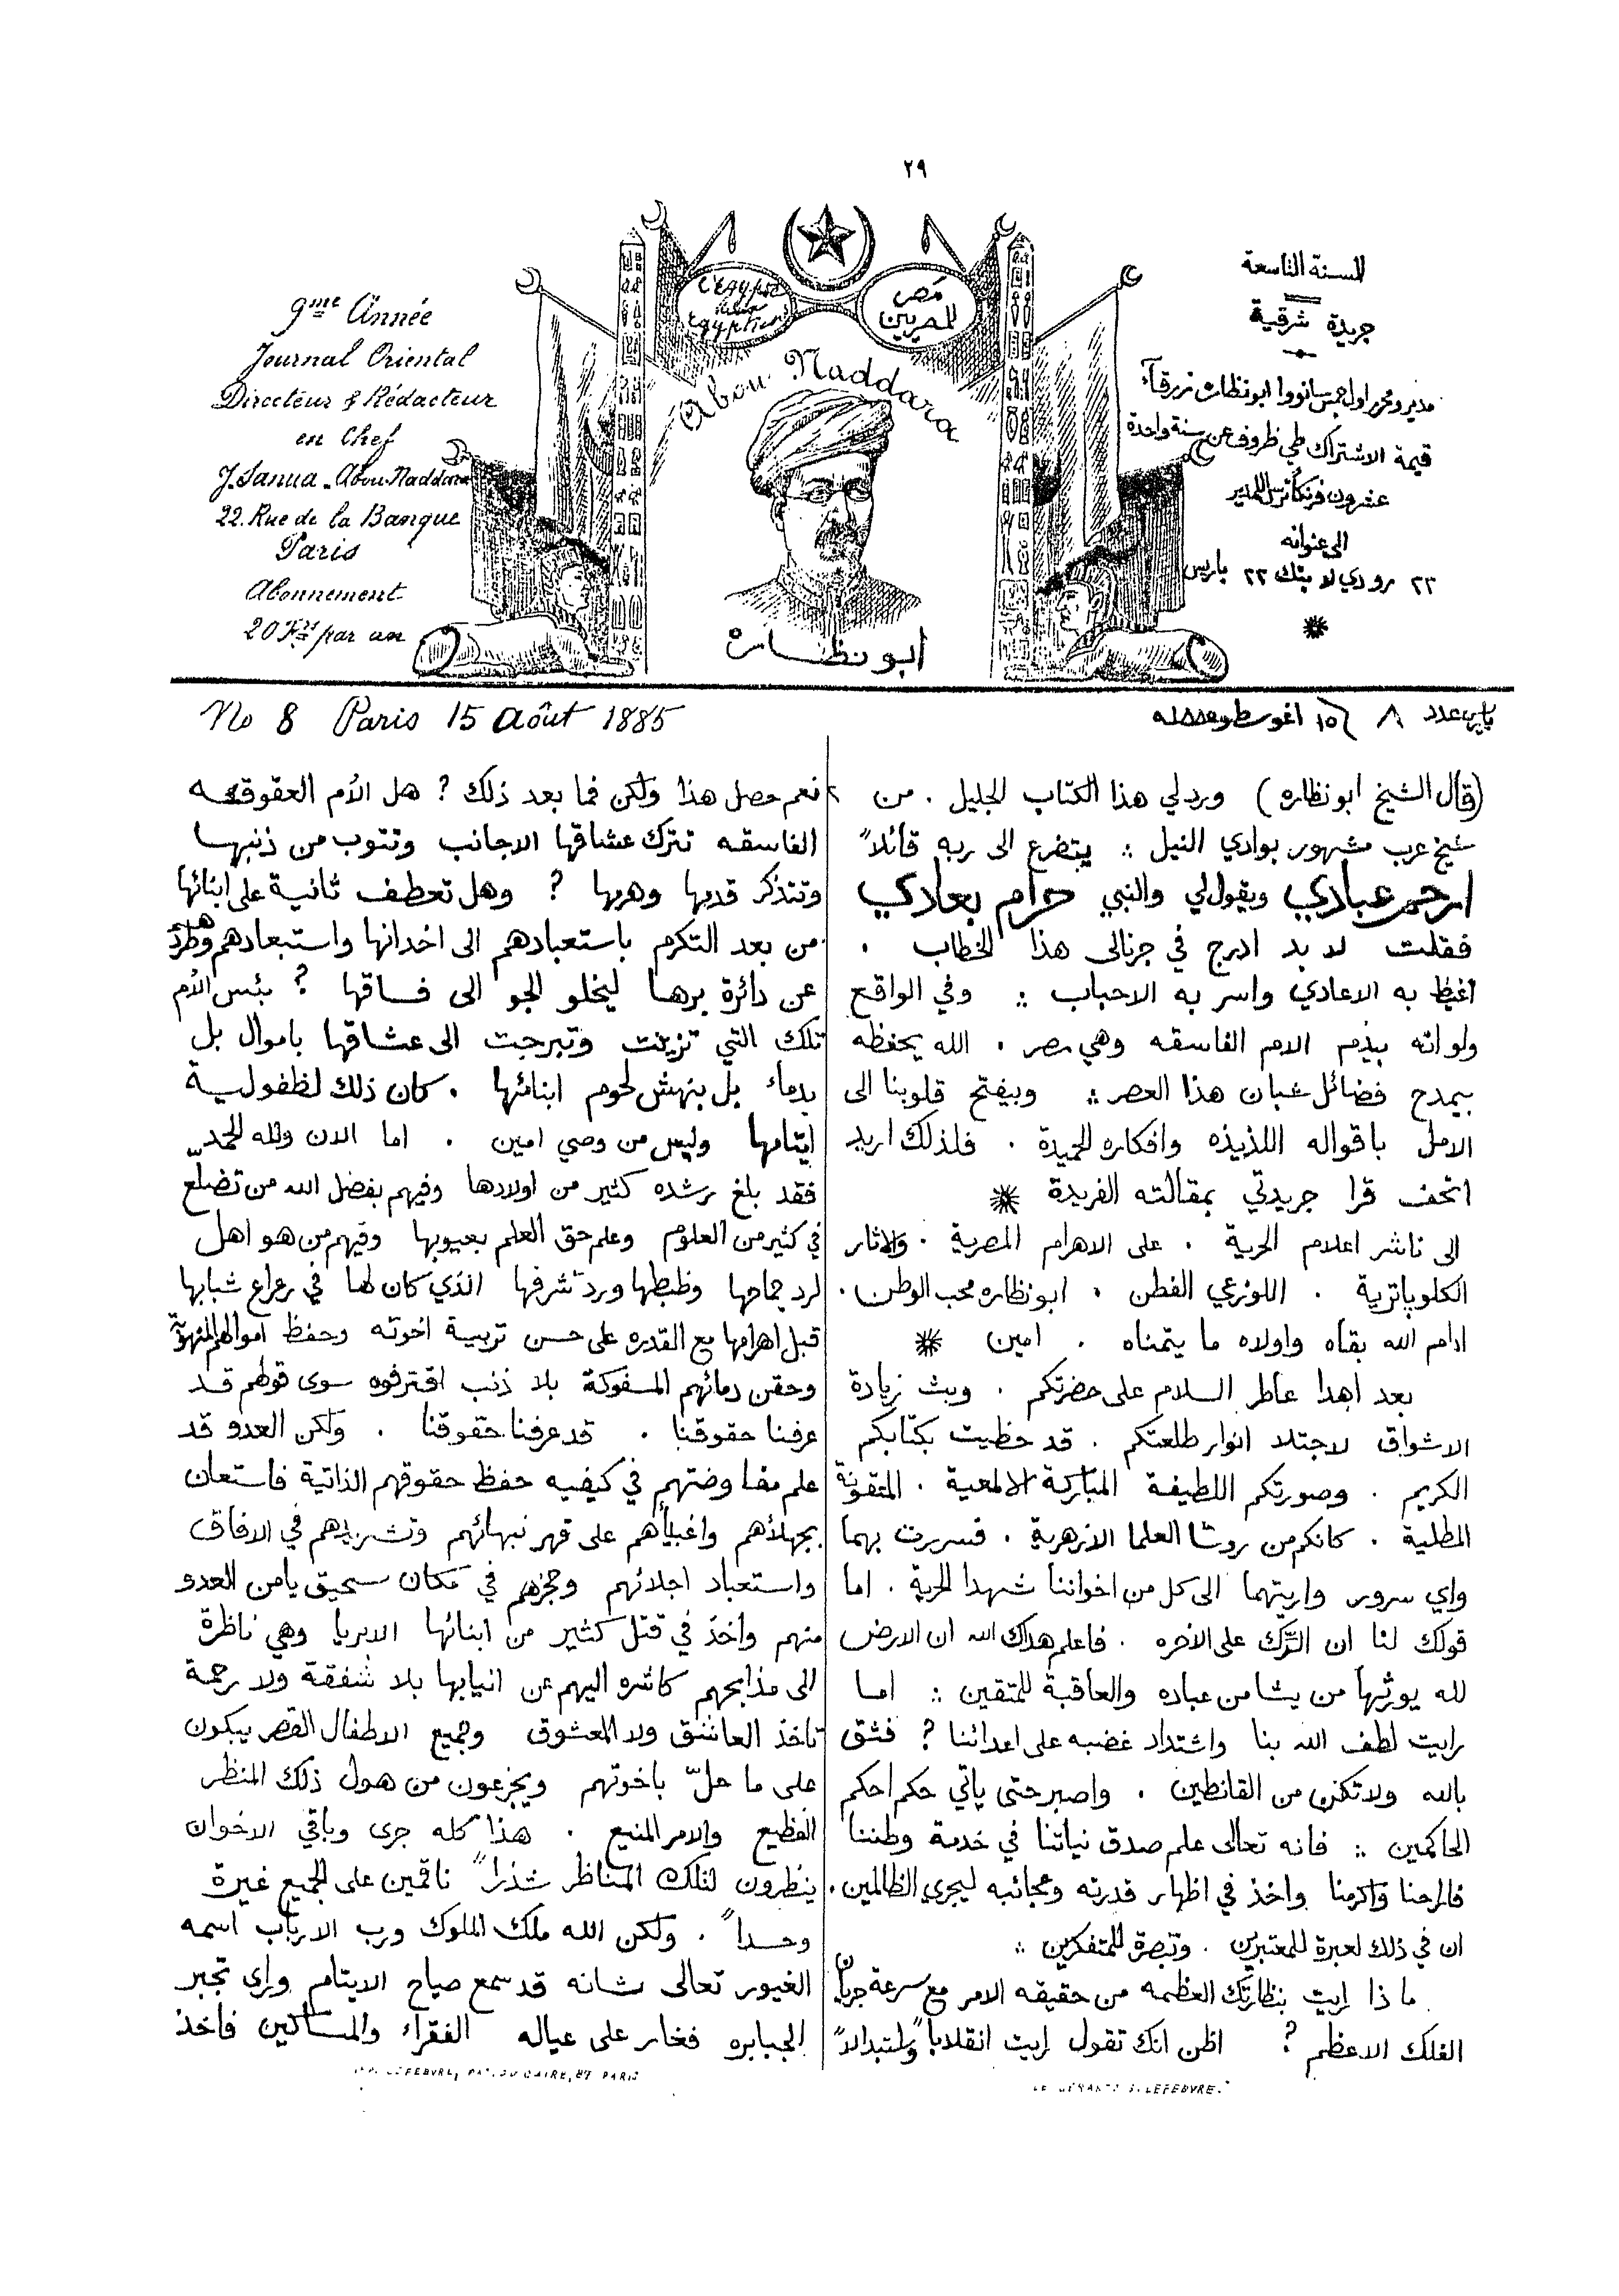 ٢٩
9me Année
Journal Oriental
Directeur & Rédacteur
en Chef
J. Sanua. Abou Naddara
22. Rue de la Banque
Paris
Abonnement
20 Frs par an
L'Egypte
Egyptiens
مصر
للمصريين
Abou Naddara
ابو نظارة
السنة التاسعة
جريدة شرقية
مدير ومحرر اول جمس سانووا ابو نظاره زرقآء
قيمة الاشتراك طي ظروف عن سنة واحدة
عشرون فرنكا ترسل للمدير
الى عنوانه
٢٢ رو دي لا بنك ٢٢ باريس
No 8 Paris 15 Août 1885
باريس عدد ٨ في ١٥ اغوسطوس ١٨٨٥
(قال الشيخ ابو نظاره) ورد لي هذا الكتاب الجليل . من
شيخ عرب مشهور بوادي النيل ؞ يتضرع الى ربه قائلاً
ارحم عبادي ويقول لي والنبي حرام بعادي
فقلت لا بد ادرج في جرنالى هذا الخطاب .
اغيظ به الاعادي واسر به الاحباب ؞ وفي الواقع
ولو انه بيذم الام الفاسقه وهي مصر . الله يحفظه
بيمدح فضائل شبان هذا العصر ؞ وبيفتح قلوبنا الى
الامل باقواله اللذيذه وافكاره الحميدة . فلذلك اريد
اتحف قرا جريدتي بمقالته الفريدة
الى ناشر اعلام الحرية . على الاهرام المصرية . والاثار
الكلوباترية . اللوزعي الفطن . ابو نظاره محب الوطن .
ادام الله بقاه واولاه ما يتمناه . امين
بعد اهدا عاطر السلام على حضرتكم . وبث زيادة
الاشواق لاجتلا انوار طلعتكم . قد حظيت بكتابكم
الكريم . وصورتكم اللطيفة المباركة الالمعية .
المطلية . كانكم من روسا العلما الازهرية . فسررت بهما
واي سرور واريتهما الى كل من اخواننا شهدا الحرية . اما
قولك لنا ان الترك على الاخره . فاعلم هداك الله ان الارض
لله يورثها من يشا من عباده والعاقبة للمتقين ؞ اما
رايت لطف الله بنا واشتداد غضبه على اعدائنا ? فثق
بالله ولا تكن من القانطين . واصبر حتى ياتي حكم احكم
الحاكمين ؞ فانه تعالى علم صدق نياتنا في خدمة وطننا
فالرحنا واكرمنا واخذ في اظهار قدرته وعجائبه ليجزي الظالمين .
ان في ذلك لعبرة للمعتبرين . وتبصرة للمتفكرين ؞
ما ذا رايت بنظارتك العظيمه من حقيقه الامر مع سرعة جريان
الفلك الاعظم ? اظن انك تقول رايت انقلاباً واستبدالاً
نعم حصل هذا ولكن فما بعد ذلك ? هل الأم العقوقه
الفاسقه تترك عشاقها الاجانب وتتوب من ذنبها
وتتذكر قديها وهربها ? وهل تعطف ثانية على ابنائها
من بعد التكرم باستعبادهم الى اخدانها واستبعادهم وطردهم
عن دائرة برها ليخلو الجو الى فساقها ? بئس الأم
تلك التي تزينت وتبرجت الى عشاقها باموال بل
بدماء بل بنهش لحوم ابنائها . كان ذلك لطفولية
ايتامها وليس من وصي امين . اما الان ولله الحمد
فقد بلغ رشده كثير من اولادها وفيهم بفضل الله من تضلع
في كثير من العلوم وعلم حق العلم بعيوبها وفيهم من هو اهل
لرد جماحها وظبطها ورد شرفها الذي كان لها في رعراع شبابها
قبل اهرامها مع القدره على حسن تربية اخوته وحفظ اموالهم المنهوبة
وحقن دمائهم المسفوكة بلا ذنب اقترفوه سوى قولهم قد
عرفنا حقوقنا . قد عرفنا حقوقنا . ولكن العدو قد
علم مفاوضتهم في كيفيه حفظ حقوقهم الذاتية فاستعان
بجهلأهم واغبيأهم على قهر نبهائهم وتشريدهم في الافاق
واستعباد اجلائهم وحجزهم في مكان سحيق يامن العدو
منهم واخذ في قتل كثير من ابنائها الابريا وهي ناظرة
الى مذابحهم كاشره اليهم عن انيابها بلا شفقة ولا رحمة
تاخذ العاشق ولا المعشوق وجميع الاطفال القصر يبكون
على ما حلّ باخوتهم ويجزعون من هول ذلك المنظر
الفظيع والامر المنيع . هذا كله جرى وباقي الاخوان
ينظرون لتلك المناظر شذراً ناقمين على الجميع غيرة
وحسداً . ولكن الله ملك الملوك ورب الارباب اسمه
الغيور تعالى شانه قد سمع صياح الايتام وراى تجبر
الجبابره فغار على عياله الفقراء والمساكين فاخذ
LEFEBVRE, PAS. DU CAIRE, 87 PARIS
LE GÉRANT J. LEFEBVRE.